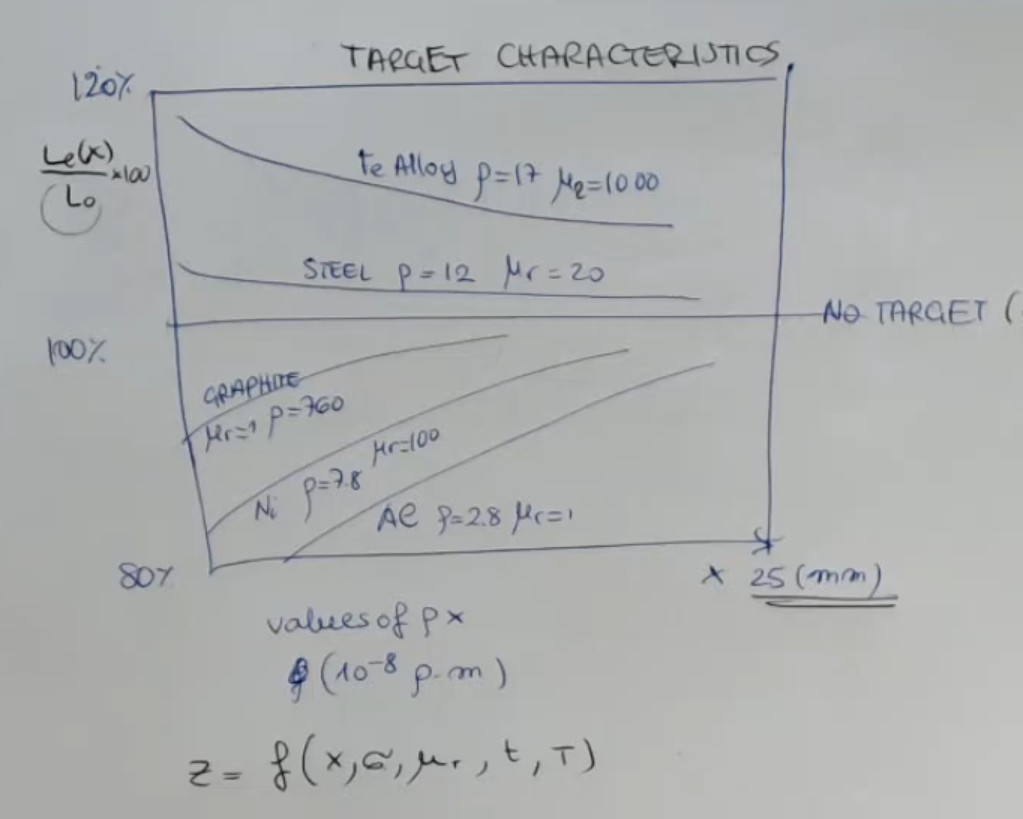 TARGET CHARACTERISTICS
120%
Le(x)/Lo ×100
Fe Alloy ρ=17 μ2=1000
STEEL ρ=12 μr=20
NO TARGET (
100%
GRAPHITE
μr=1 ρ=760
μr=100
Ni ρ=7.8
Al ρ=2.8 μr=1
80%
x 25 (mm)
values of ρ x
(10⁻⁸ ρ.m)
z = f(x,σ,μr,t,T)